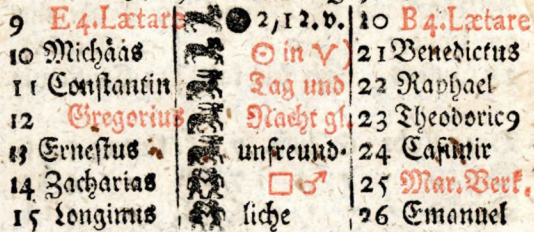 9 E 4. Lætare ● 2, 12. v. 20 B 4. Lætare
10 Michåås ☉ in ♈ ) 21 Benedictus
11 Constantin Tag und 22 Raphael
12 Gregorius Nacht gl. 23 Theodoric9
13 Ernestus unfreund- 24 Casimir
14 Zacharias □ ♂ 25 Mar. Verk.
15 Longinus liche 26 Emanuel